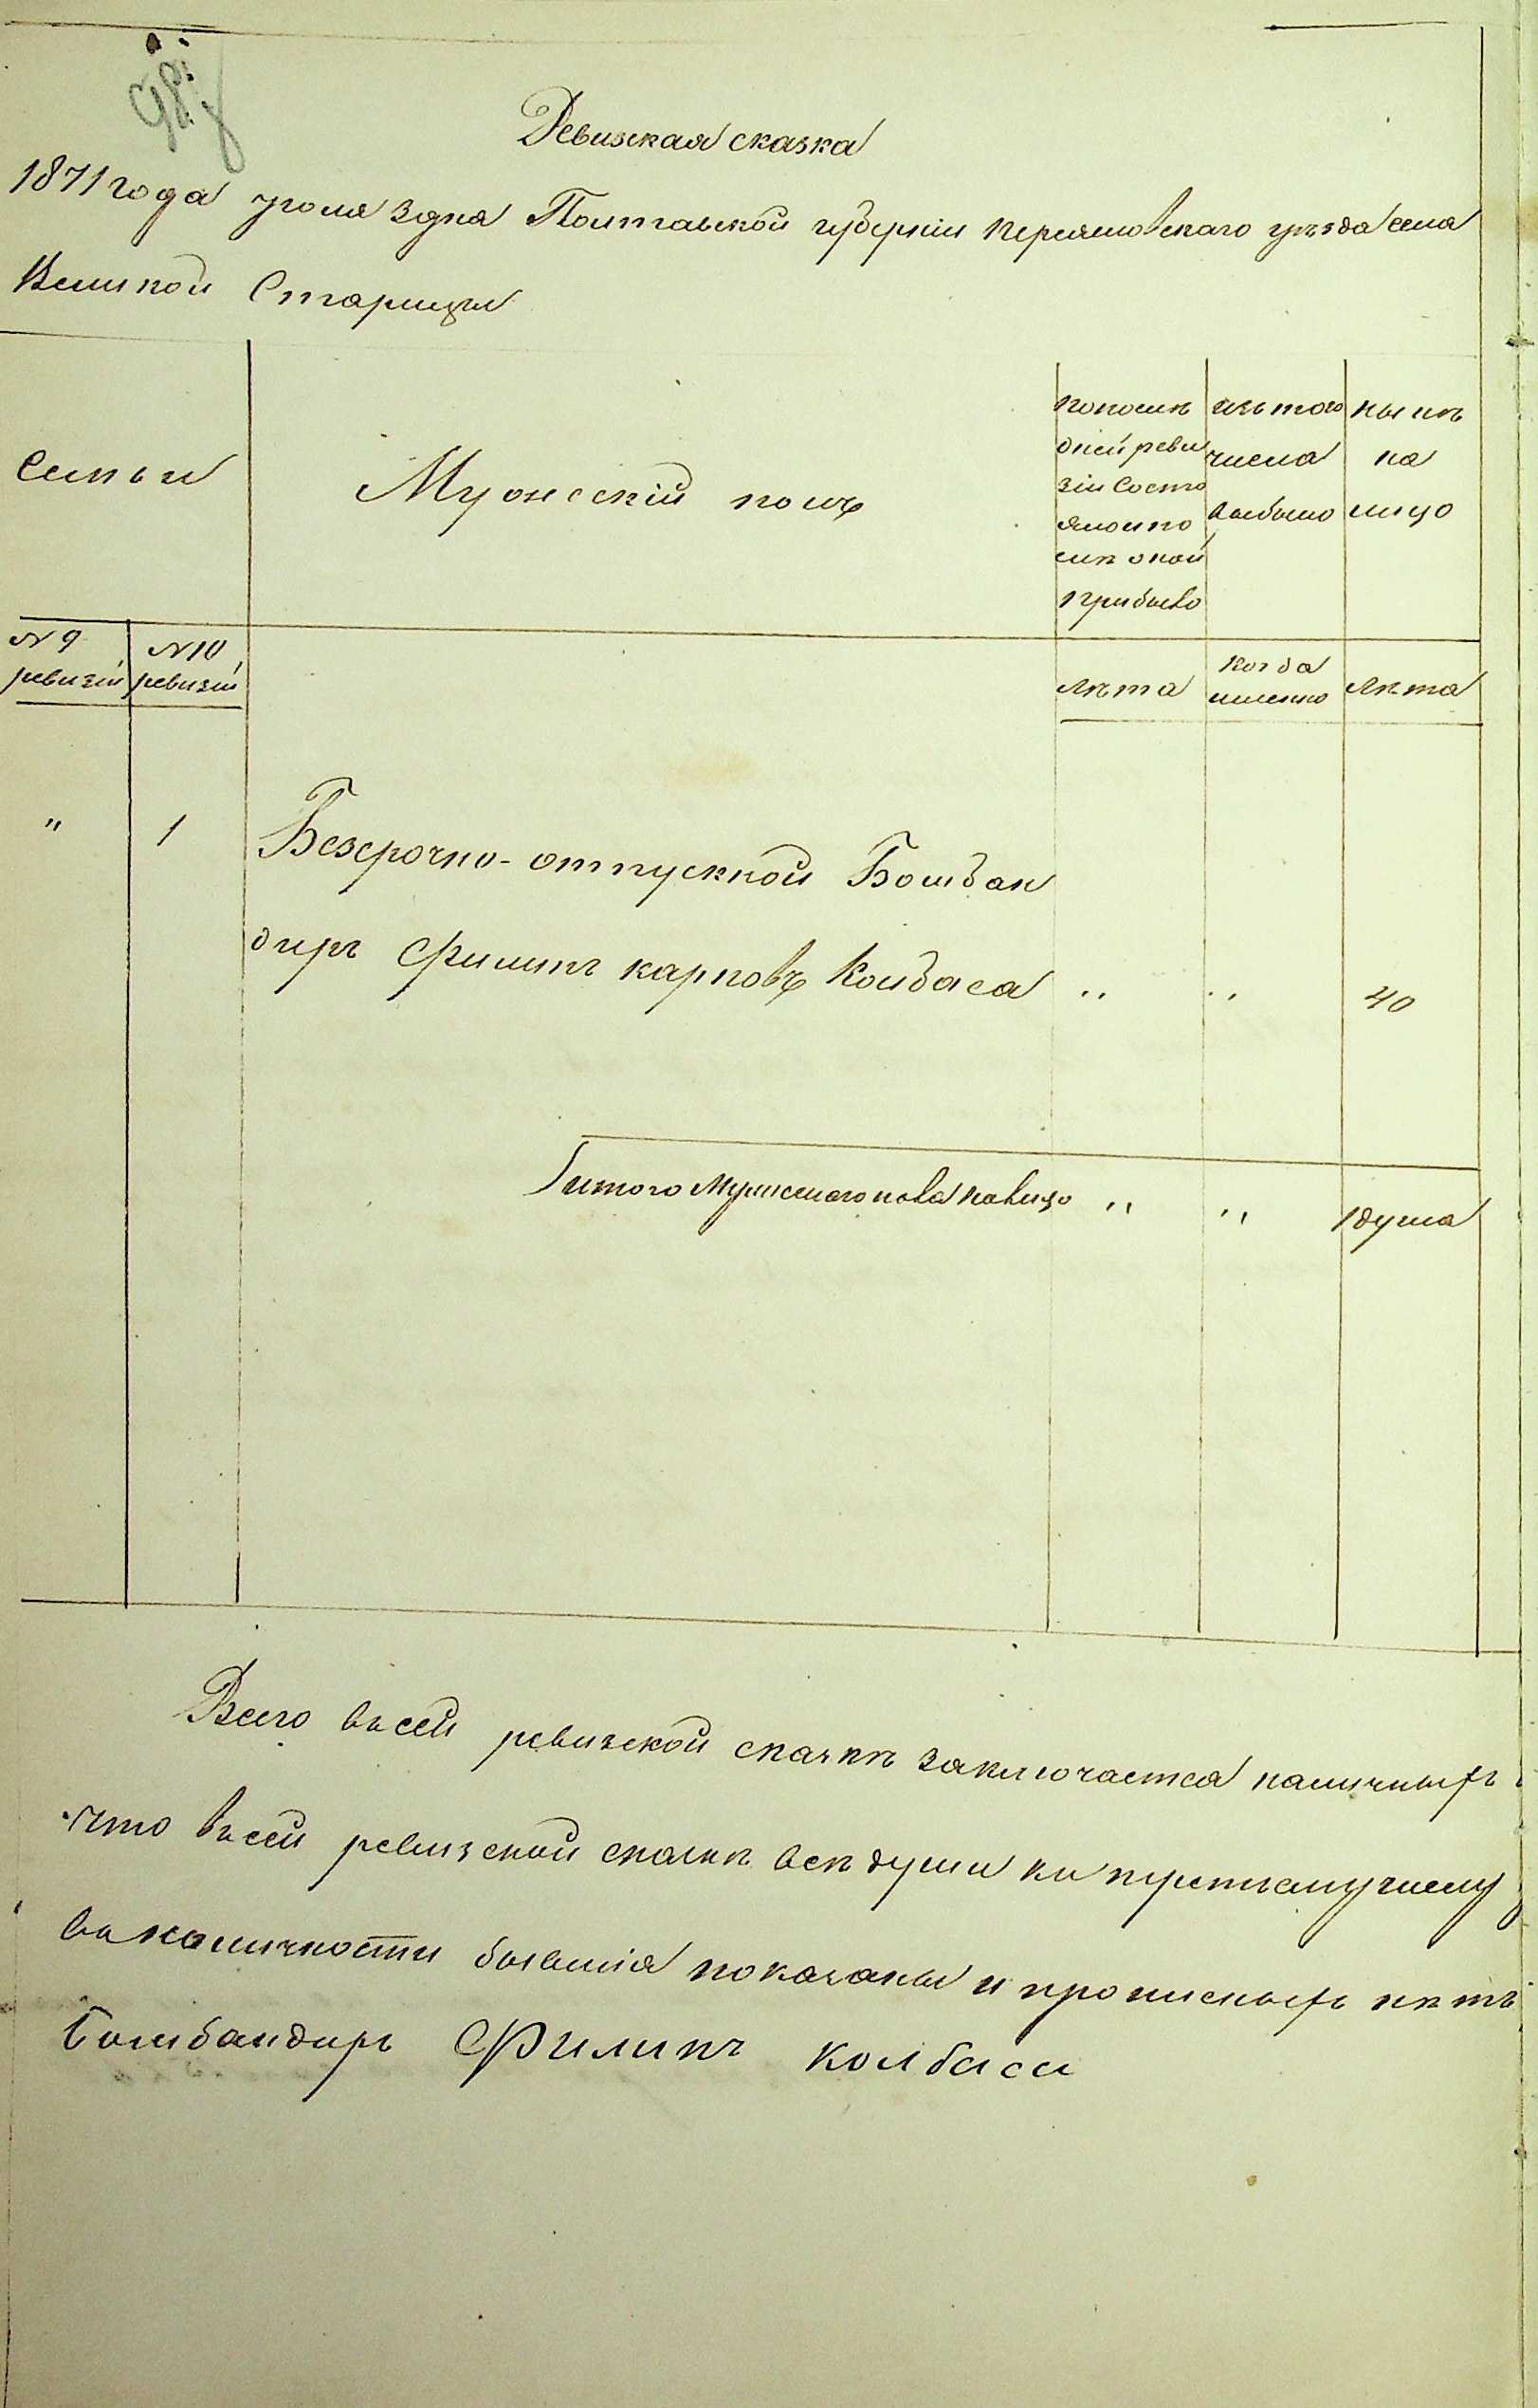 Ревизская сказка
1871 года июля 3 дня Полтавской губернии Переяславскаго уѣзда села
Великой Старицы
Семьи
Мужескій полъ
по послѣ
дней реви
зіи Состо
яло и по
слѣ оной
прибыло
изъ того
числа
выбыло
нынѣ
на
лицо
№ 9
ревизіи
№ 10
ревизіи
лѣта
когда
именно
лѣта
" 1 Безсрочно-отпускной Бомбан
диръ Филипъ карповъ Колбаса " " 40
итого Мужескаго пола налицо " " 1 душа
Всего въ сей ревизской сказкѣ заключается наличныхъ
что въ сей ревизской сказкѣ всѣ души къ числу
въ наличности бывшія показаны и прописныхъ нѣтъ
Бомбандиръ Филипъ колбаса